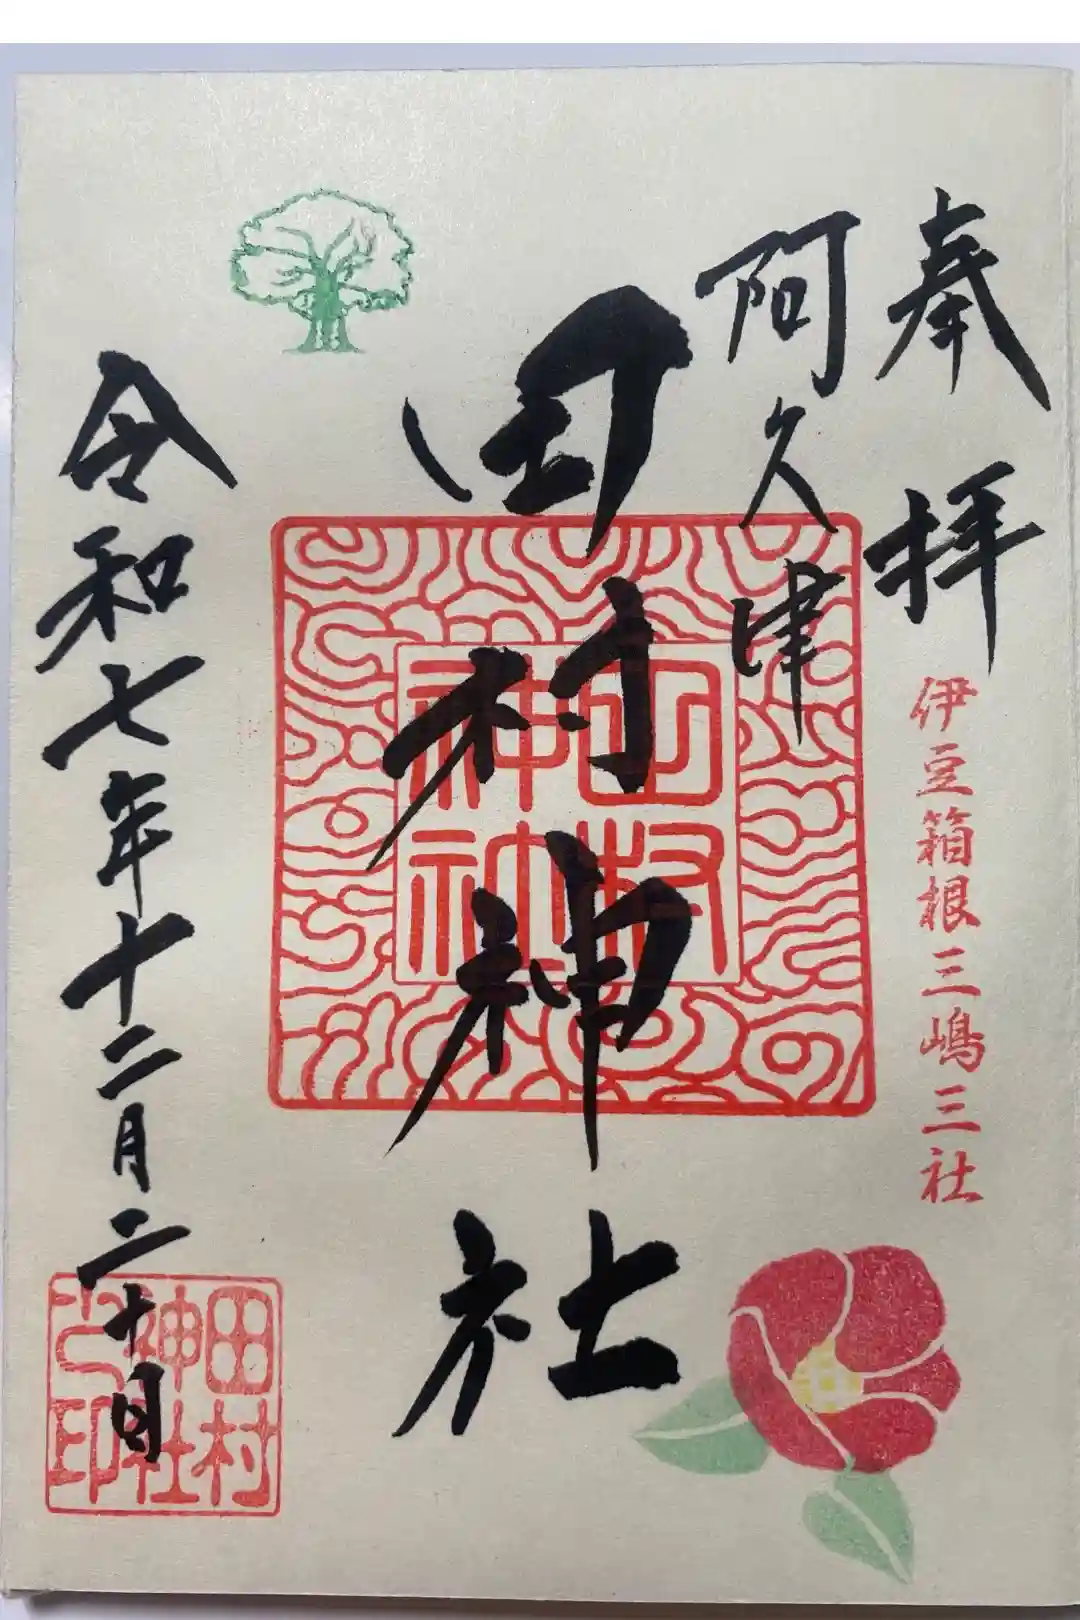 奉拝
伊豆箱根三嶋三社
阿久津
田村神社
田村神社
令和七年十二月二十日
田村神社之印